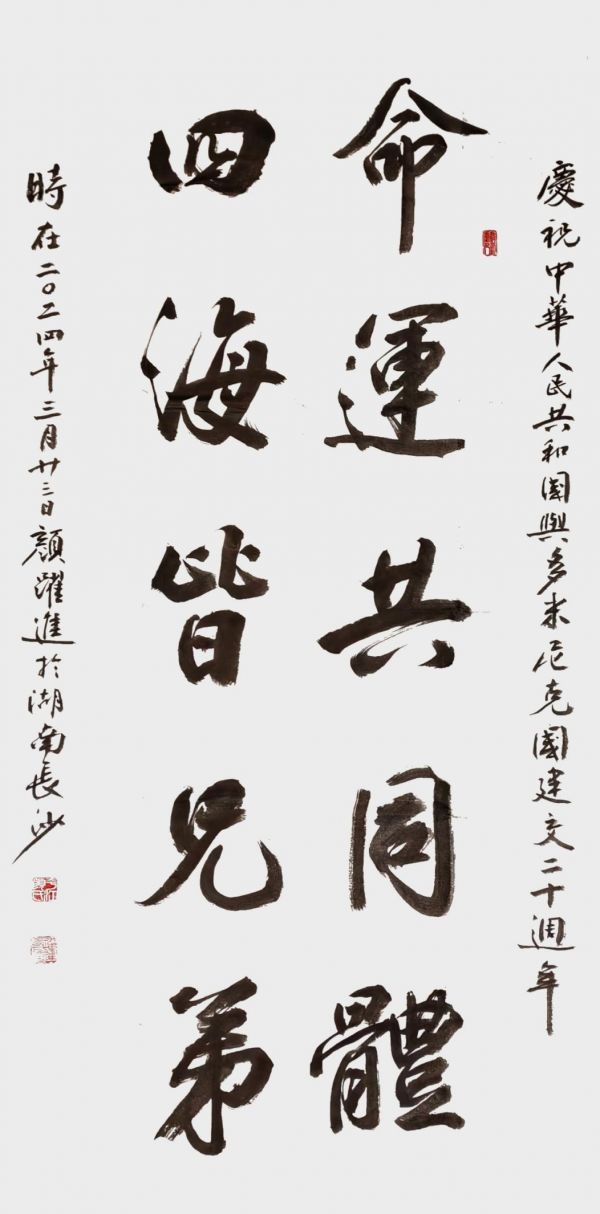 慶祝中華人民共和國與多米尼克國建交二十週年
命運共同體
四海皆兄弟
時在二〇二四年三月廿三日顏躍進於湖南長沙